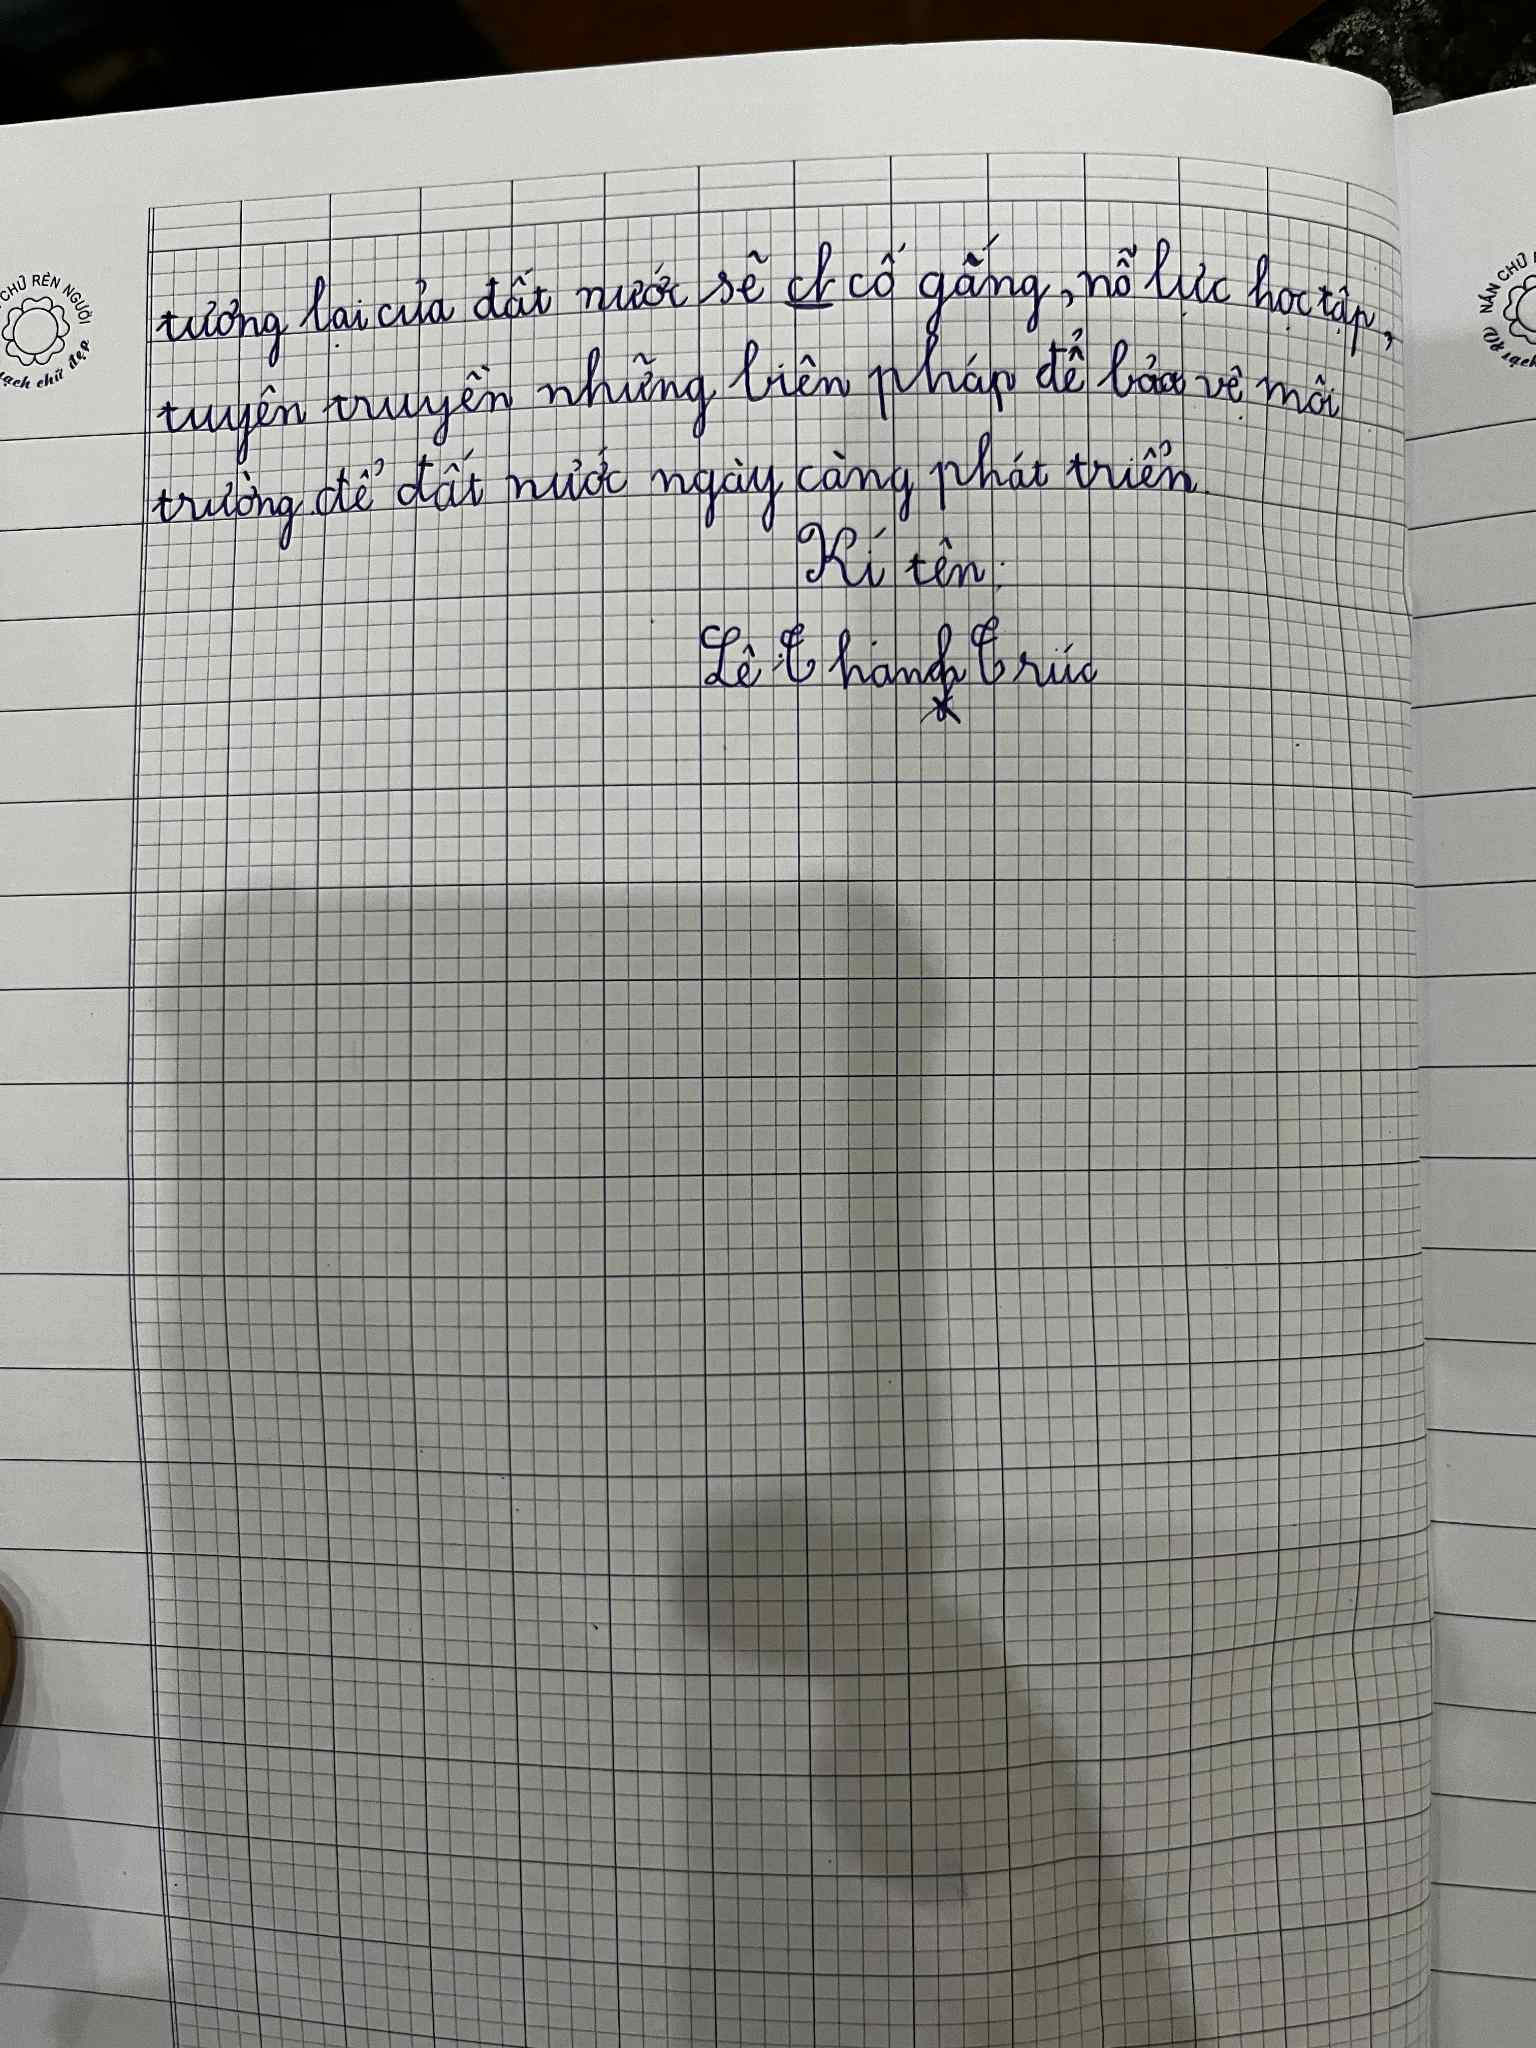 tương lại của đất nước sẽ ch cố gắng, nỗ lực học tập,
tuyên truyền những biện pháp để bảo vệ môi
trường để đất nước ngày càng phát triển.
Kí tên:
Lê Thanh Trúc
CHỮ RÈN NGƯỜI
sạch chữ đẹp
NẮN CHỮ
sạch